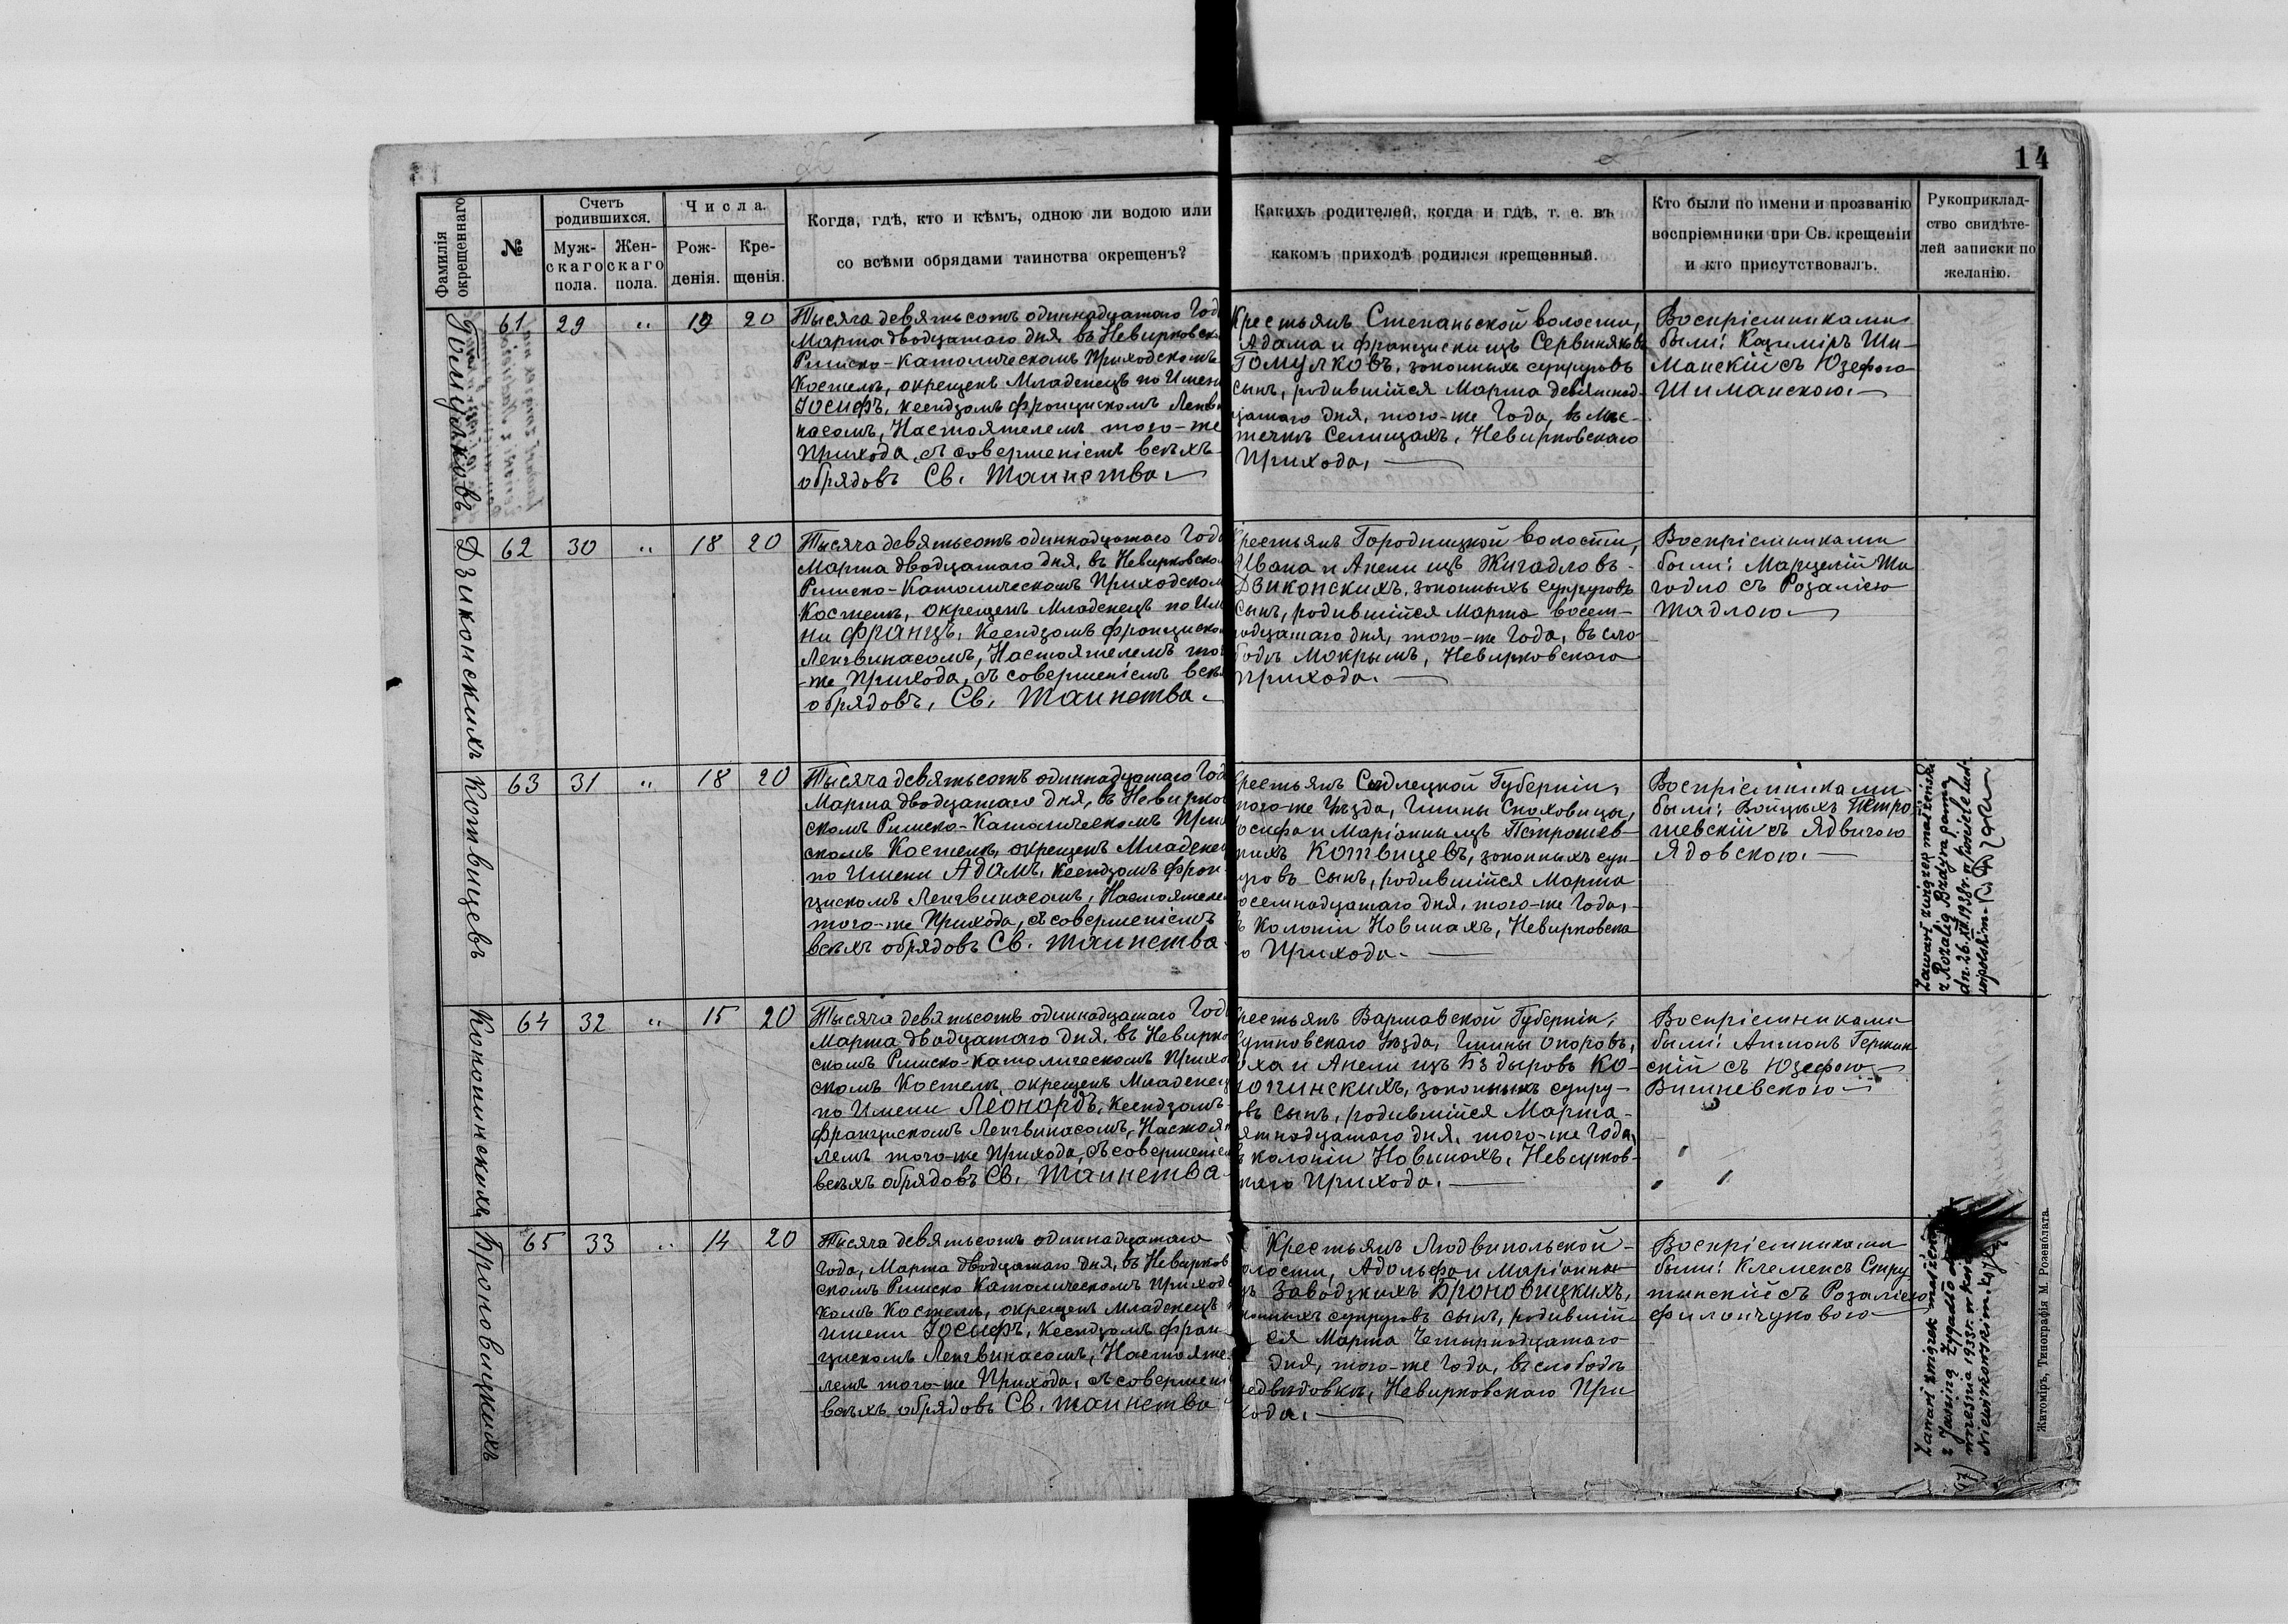 14
Фамилія окрещеннаго
№
Счетъ родившихся.
Муж-
скаго
пола.
Жен-
скаго
пола.
Числа.
Рож-
денія.
Кре-
щенія.
Когда, гдѣ, кто и кѣмъ, одною ли водою или
со всѣми обрядами таинства окрещенъ?
Какихъ родителей, когда и гдѣ, т. е. въ
какомъ приходѣ родился крещенный.
Кто были по имени и прозванію
воспріемники при Св. крещеніи
и кто присутствовалъ.
Рукоприклад-
ство свидѣте-
лей записки по
желанію.
Гомулковъ
61 29 " 19 20
Тысяча девятьсотъ одиннадцатаго Год
Марта двадцатаго дня въ Невирковск
Римско-Католическомъ Приходскомъ
Костелѣ, окрещенъ Младенецъ по Имени
Іосифъ, Ксендзомъ Францискомъ Ленгви
насомъ, Настоятелемъ того-же
Прихода, съ совершеніемъ всѣхъ
обрядовъ Св. Таинства.
Крестьянъ Степаньской волости,
Адама и Франциски изъ Сервиняковъ
Гомулковъ, законныхъ супруговъ
сынъ, родившійся Марта девятнад-
цатаго дня, того-же Года, въ мѣс-
течкѣ Селищахъ, Невирковскаго
Прихода.
Воспріемниками
были: Казиміръ Ши-
манскій съ Юзефою
Шиманскою.
Дзиконскихъ
62 30 " 18 20
Тысяча девятьсотъ одиннадцатаго Года
Марта двадцатаго дня, въ Невирковско
Римско-Католическомъ Приходском
Костелѣ, окрещенъ Младенецъ по Име
ни Францъ, Ксендзомъ Франциско
Ленгвинасомъ, Настоятелемъ то
-же Прихода, съ совершеніемъ всѣ
обрядовъ, Св. Таинства.
Крестьянъ Городницкой волости,
Ивана и Анели изъ Жигадловъ-
Дзиконскихъ, законныхъ супруговъ
сынъ, родившійся Марта восем-
надцатаго дня, того-же Года, въ сло
бодѣ Мокрымъ, Невирковскаго
Прихода.
Воспріемниками
были: Марцелій Жи
гадло съ Розаліею
Жадлою.
Котвицевъ
63 31 " 18 20
Тысяча девятьсотъ одиннадцатаго Год
Марта двадцатаго дня, въ Невирков
скомъ Римско-Католическомъ При
скомъ Костелѣ, окрещенъ Младенец
по Имени Адамъ, Ксендзомъ Фран-
цискомъ Ленгвинасомъ, Настоятеле
того-же Прихода, съ совершеніемъ
всѣхъ обрядовъ Св. Таинства
рестьянъ Сѣдлецкой Губерніи,
того-же Уѣзда, Гмины Скоховицы,
осифа и Маріанны изъ Петрошев-
кихъ Котвицевъ, законныхъ суп-
уговъ сынъ, родившійся Марта
осемнадцатаго дня, того-же Года,
ъ Колоніи Новинахъ, Невирковска
о Прихода.
Воспріемниками
были: Войцѣхъ Петро
шевскій съ Ядвигою
Ядовскою.
Zawarł związek małżeński
z Rozalią panną
dn. 26.XII.1938r. w kościele Lud-
wipolskim
Кокопинскихъ
64 32 " 15 20
Тысяча девятьсотъ одиннадцатаго Год
Марта двадцатаго дня, въ Невирко
скомъ Римско-Католическомъ Прихо
скомъ Костелѣ окрещенъ Младенец
по Имени Леонардъ, Ксендзомъ
Францискомъ Ленгвинасомъ, Настоя
лемъ того-же Прихода, съ совершеніе
всѣхъ обрядовъ Св. Таинства
рестьянъ Варшавской Губерніи,
утновскаго Уѣзда, Гмины Опоровъ,
оха и Анели изъ Бздыровъ Ко-
опинскихъ, законныхъ супру-
овъ сынъ, родившійся Марта-
ятнадцатаго дня, того-же Года,
ъ колоніи Новинахъ, Невирков-
каго Прихода.
Воспріемниками
были: Антонъ
скій съ Юзефою
Вишневскою
Броновицкихъ
65 33 " 14 20
Тысяча девятьсотъ одиннадцатаго
Года, Марта двадцатаго дня, въ Невирков
скомъ Римско Католическомъ Приход
комъ Костелѣ, окрещенъ Младенецъ
имени Іосифъ, Ксендзомъ Фран-
цискомъ Ленгвинасомъ, Настояте
лемъ того-же Прихода, съ совершені
всѣхъ обрядовъ Св. Таинства
Крестьянъ Людвипольской-
олости, Адольфа и Маріанны
зъ Заводзкихъ Броновицкихъ,
конныхъ супруговъ сынъ, родивший
ся Марта Четырнадцатаго
дня, того-же Года, въ слободѣ
едвѣдовкѣ, Невирковскаго При
хода.
Воспріемниками
были: Клеменсъ Стру
тинскій съ Розаліею
Филончуковою
Zawarł związek małżeński
z Janiną Żygadło
września 1933r. w
Niewirkowskim.
Житоміръ, Типографія М. Розенблата.